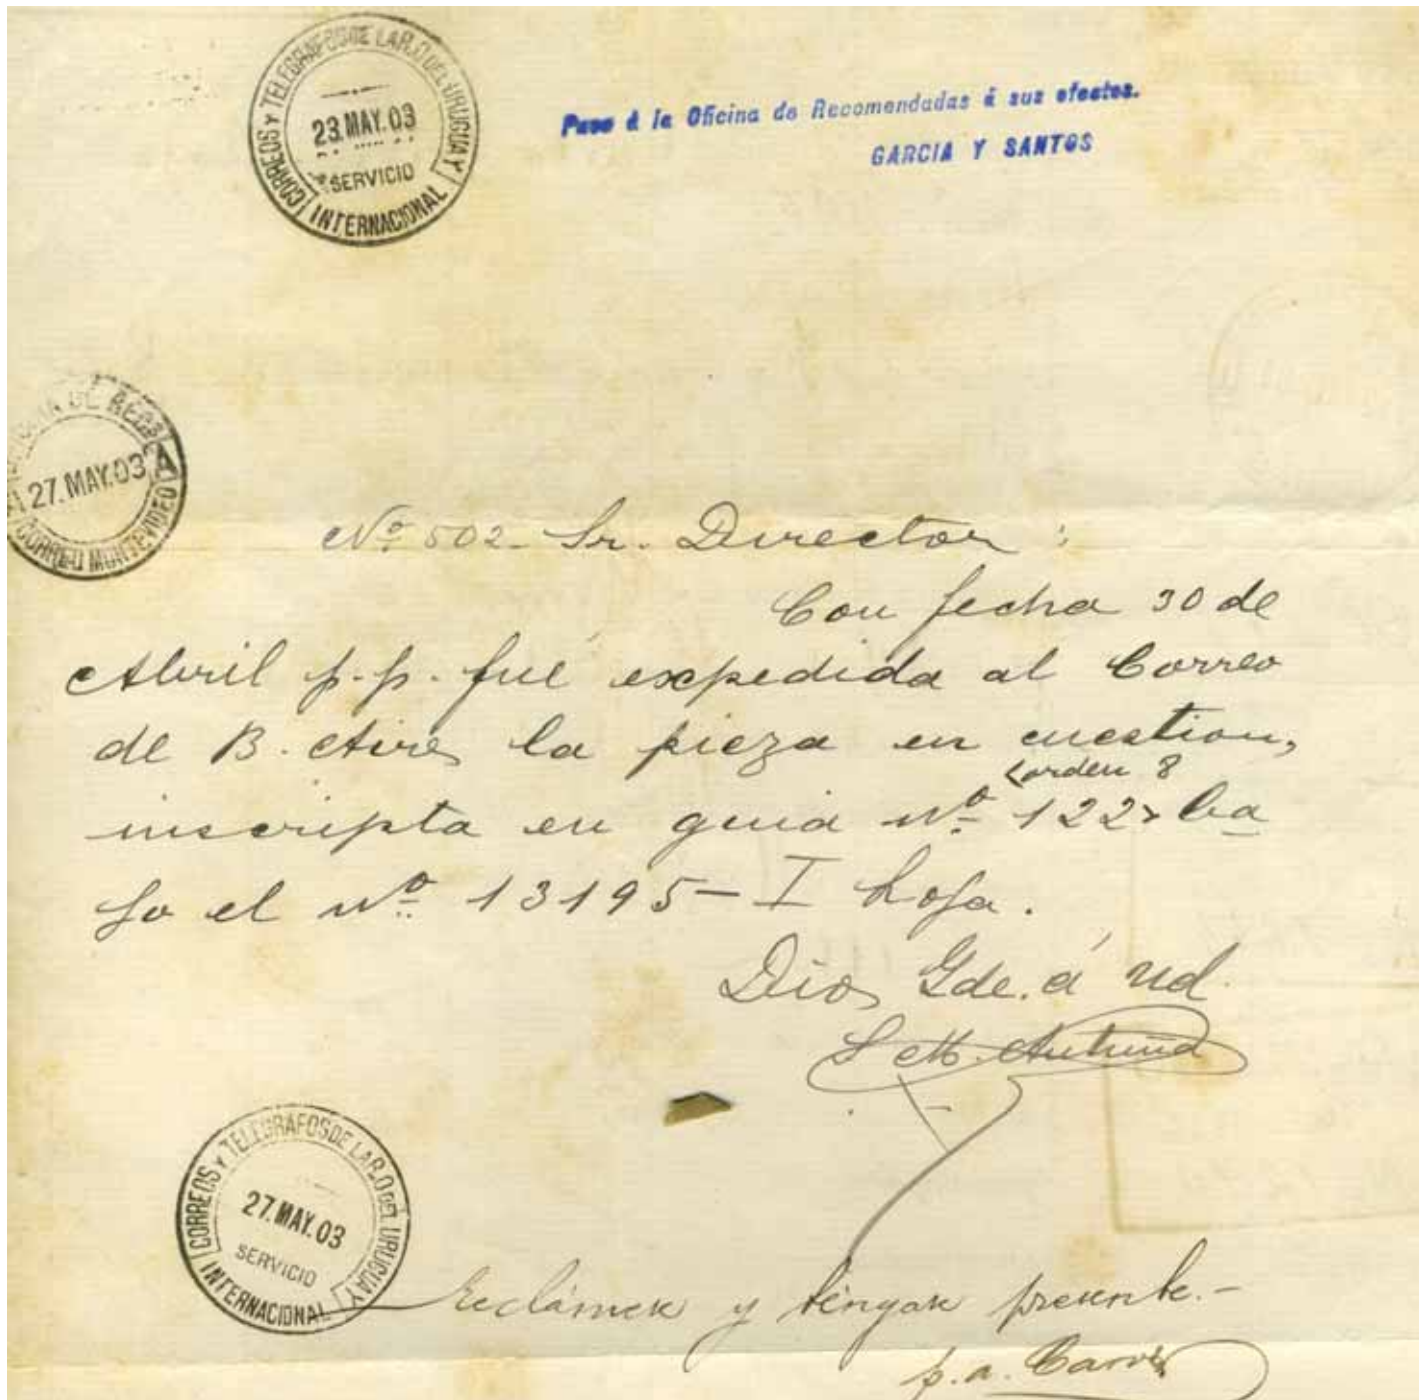 CORREOS Y TELEGRAFOS DE LA R. O. DEL URUGUAY
23. MAY. 03
SERVICIO
INTERNACIONAL
Pase á la Oficina de Recomendadas á sus efectos.
GARCIA Y SANTOS
27. MAY. 03
A
CORREO MONTEVIDEO
Nº 502 - Sr. Director :
Con fecha 30 de
Abril p.p. fué expedida al Correo
de B. Aires la pieza en cuestion,
<orden 8
inscripta en guia nº 122> ba
jo el nº 13195 - I hoja.
Dios Gde. á Ud.
CORREOS Y TELEGRAFOS DE LA R. O. DEL URUGUAY
27. MAY. 03
SERVICIO
INTERNACIONAL
Reclámese y téngase presente.-
p.a.